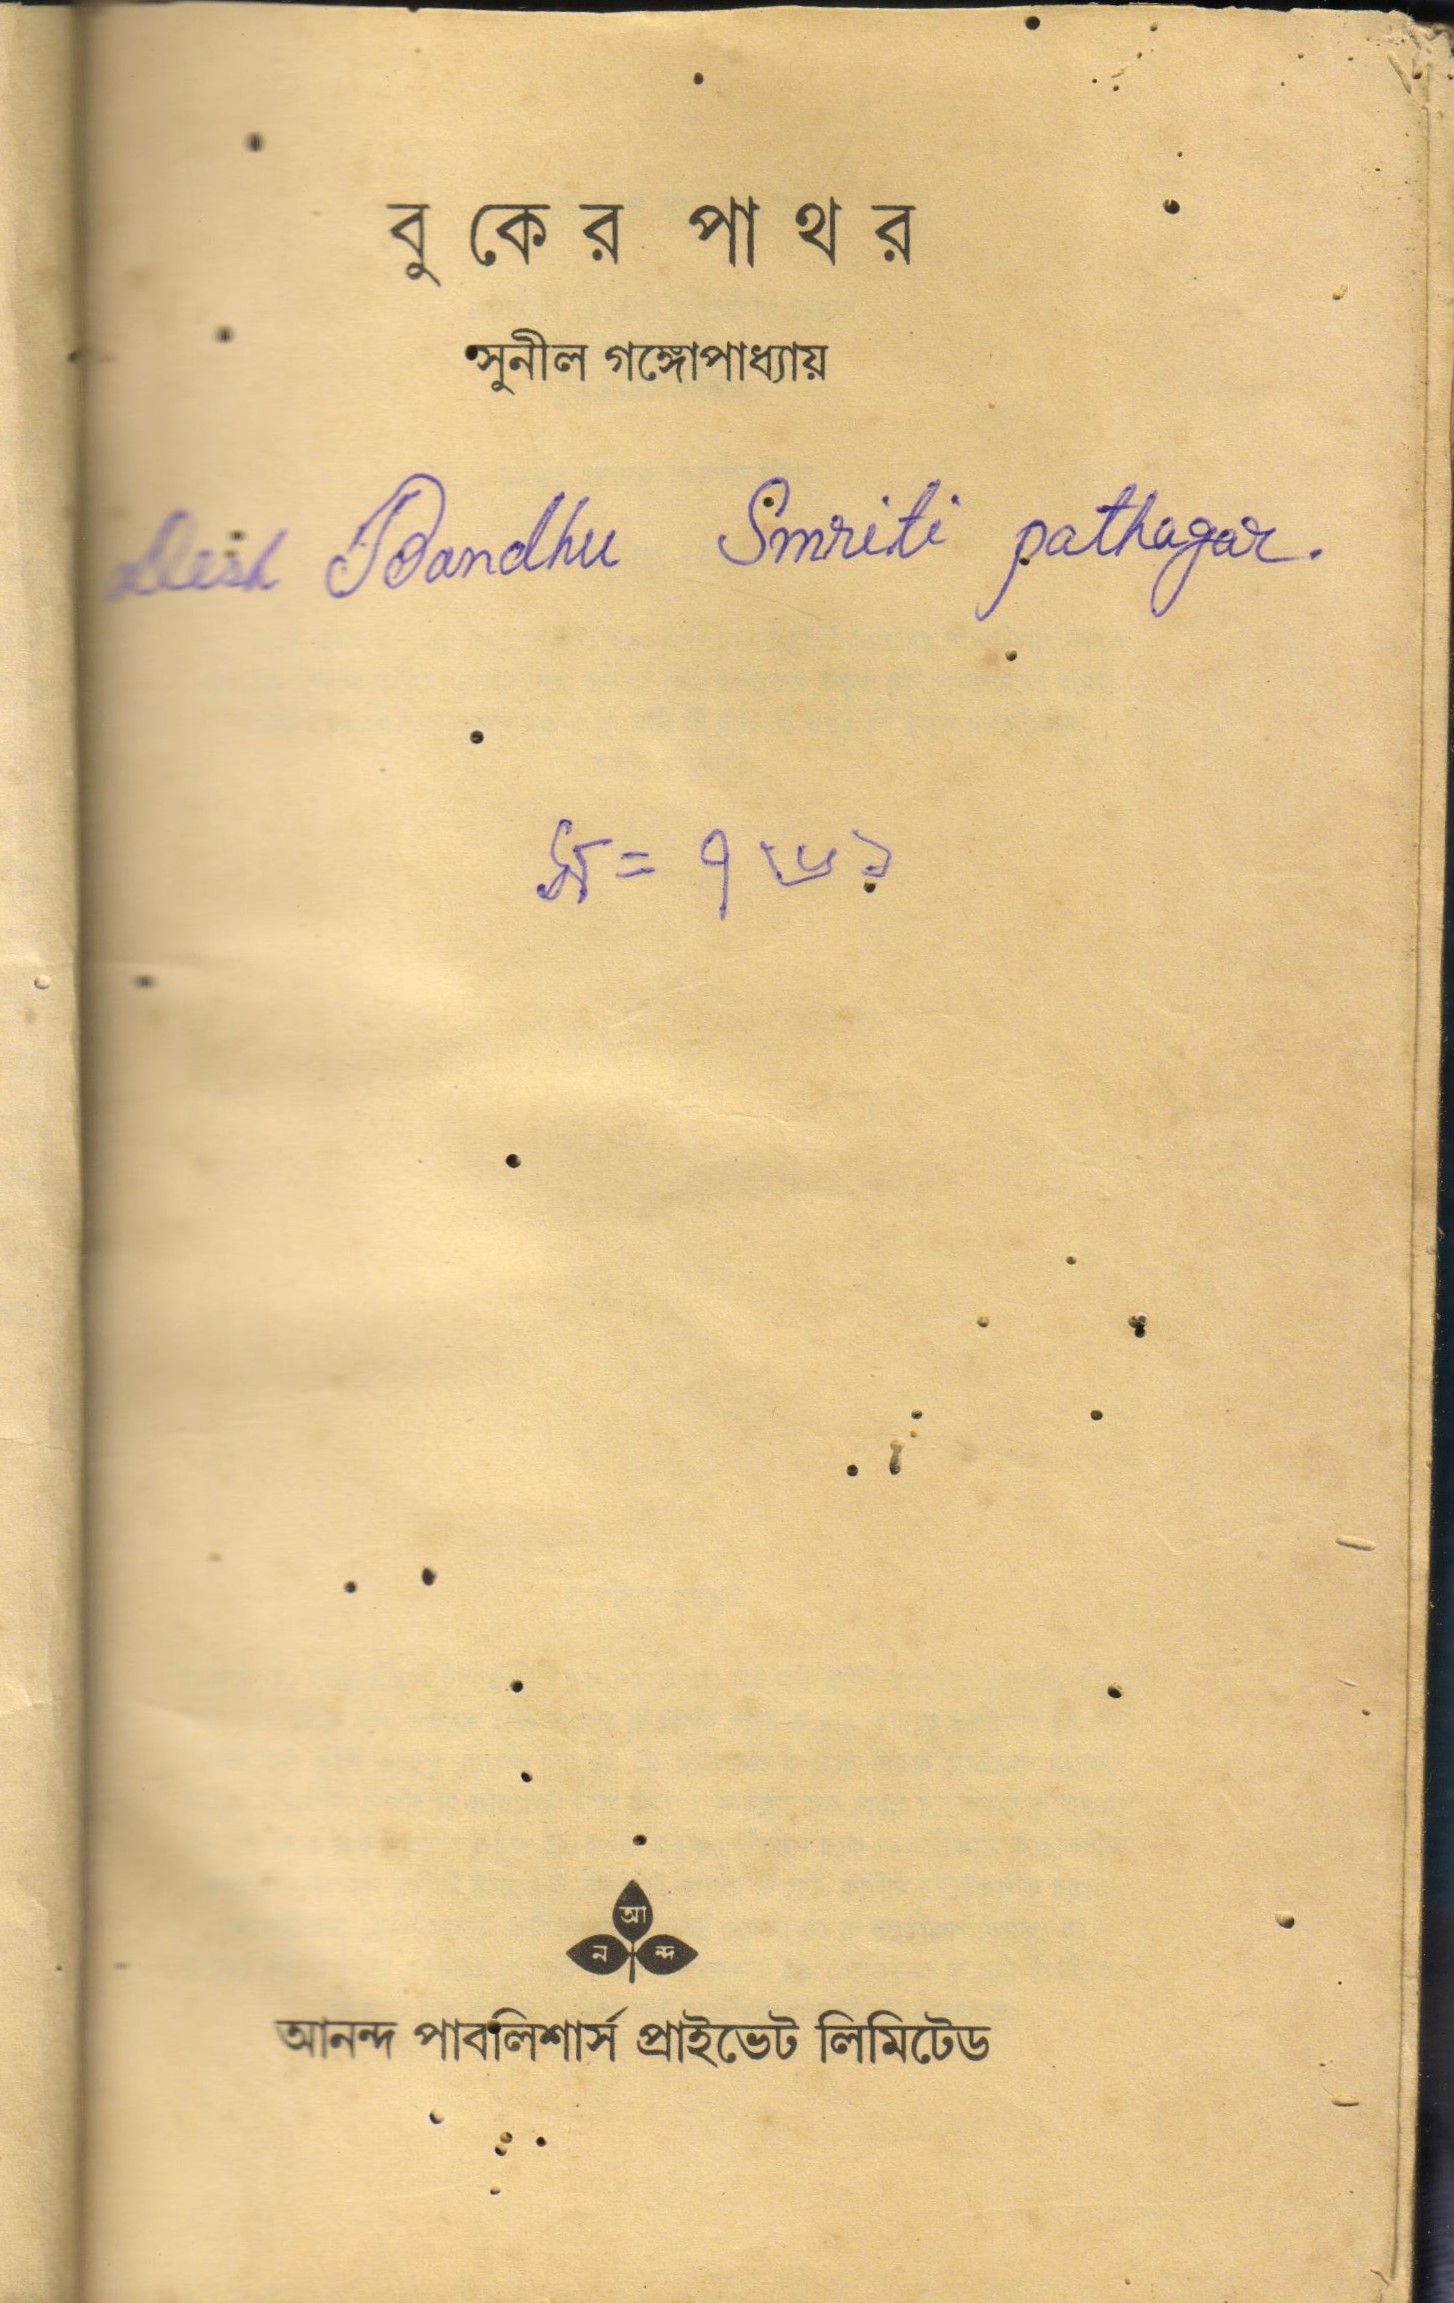 বুকের পাথর
সুনীল গঙ্গোপাধ্যায়
Desh Bandhu Smriti pathagar.
= ৭৬২
আ
ন ন্দ
আনন্দ পাবলিশার্স প্রাইভেট লিমিটেড